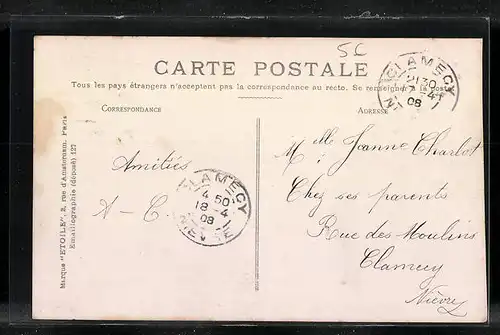 5C
CARTE POSTALE
Tous les pays étrangers n'acceptent pas la correspondance au recto. Se renseigner à la poste
CORRESPONDANCE
ADRESSE
CLAMECY
2130
-4
08
Marque "ETOILE", 2, rue d'Amsterdam, Paris
Emaillographie (déposé) 127
Amitiés
A - C
CLAMECY
4 50
18 -4
08
NIEVRE
Melle Jeanne Charlot
Chez ses parents
Rue des Moulins
Clamecy
Nièvre